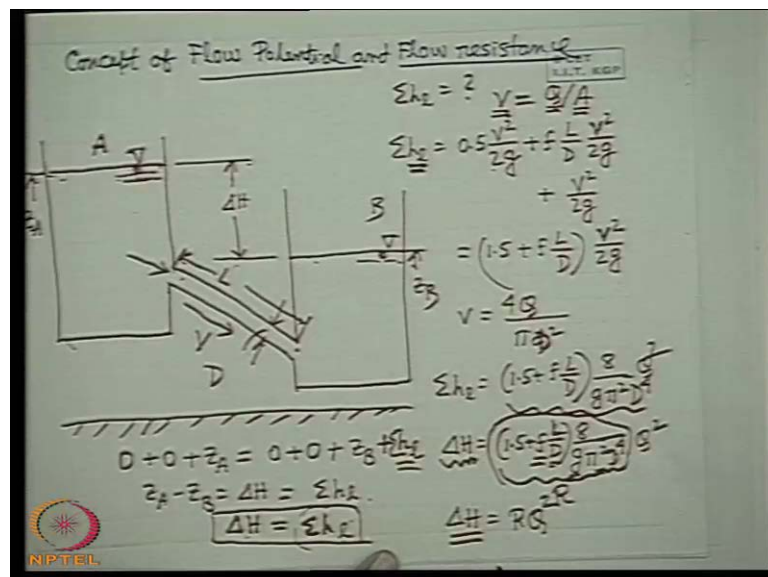 Concept of Flow Potential and Flow resistance
I.I.T. KGP
Σh_L = ? V = Q/A
Σh_L = 0.5 V²/2g + f L/D V²/2g
+ V²/2g
= (1.5 + f L/D) V²/2g
V = 4Q/πD²
Σh_L = (1.5 + f L/D) 8/gπ²D⁴ Q²
ΔH = (1.5 + f L/D) 8/gπ²D⁴ Q²
R
ΔH = RQ²
A
Z_A
ΔH
B
Z_B
L
V
D
0 + 0 + Z_A = 0 + 0 + Z_B + Σh_L
Z_A - Z_B = ΔH = Σh_L.
ΔH = Σh_L
NPTEL